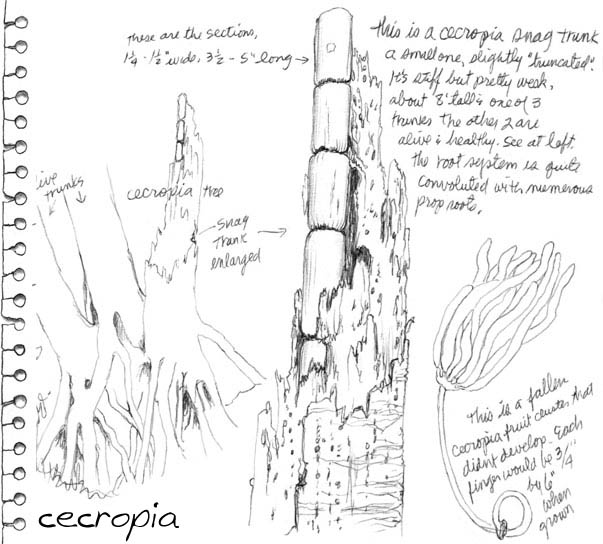 These are the sections,
1¼ - 1½" wide, 3½ - 5" long
This is a cecropia snag trunk
a small one, slightly "truncated".
It's stiff but pretty weak,
about 8' tall & one of 3
trunks the other 2 are
alive & healthy. See at left.
The root system is quite
convoluted with numerous
prop roots.
live
trunks
cecropia tree
snag
trunk
enlarged
This is a fallen
cecropia fruit cluster that
didn't develop. Each
finger would be 3/4"
by 6"
when
grown
cecropia